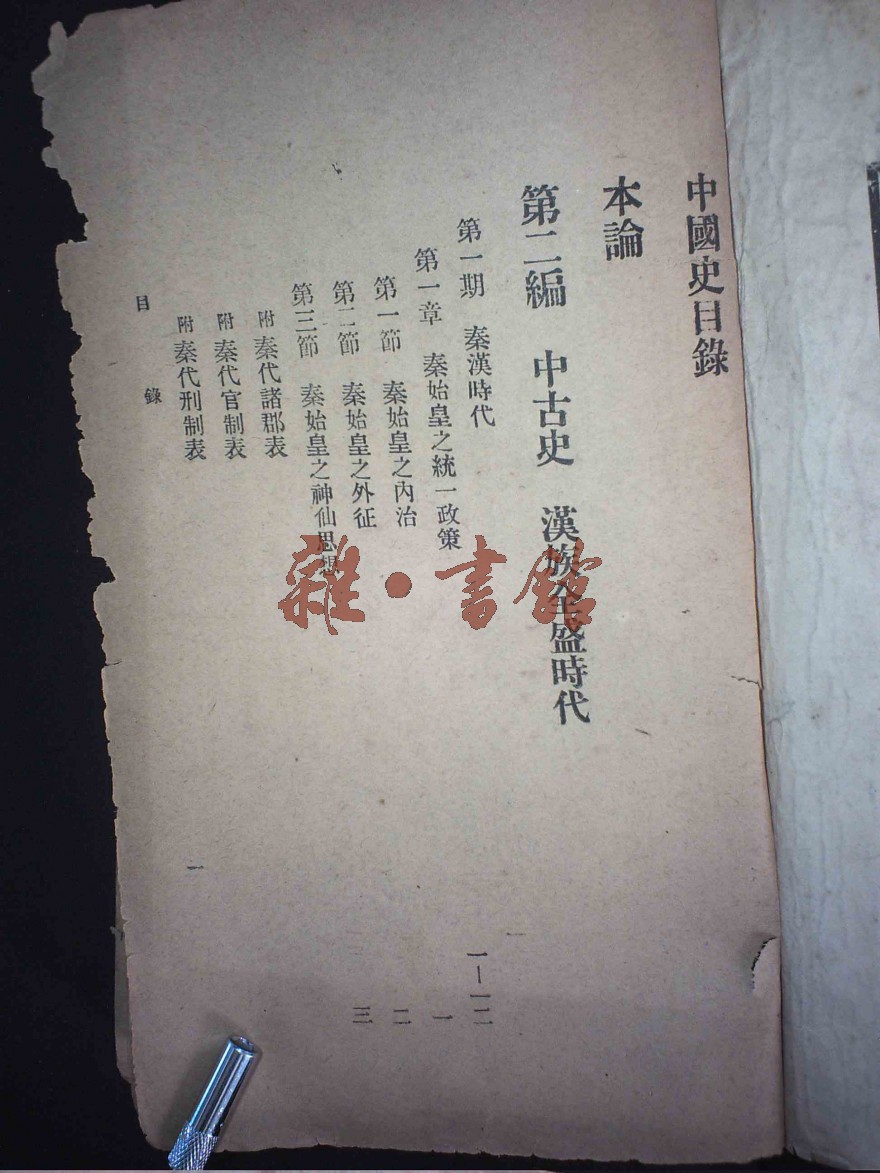 中國史目錄
本論
第二編　中古史　漢族全盛時代
第一期　秦漢時代　一—一二
第一章　秦始皇之統一政策　一
第一節　秦始皇之內治　二
第二節　秦始皇之外征　三
第三節　秦始皇之神仙思想
附　秦代諸郡表
附　秦代官制表
附　秦代刑制表
目　錄　一
雜·書館